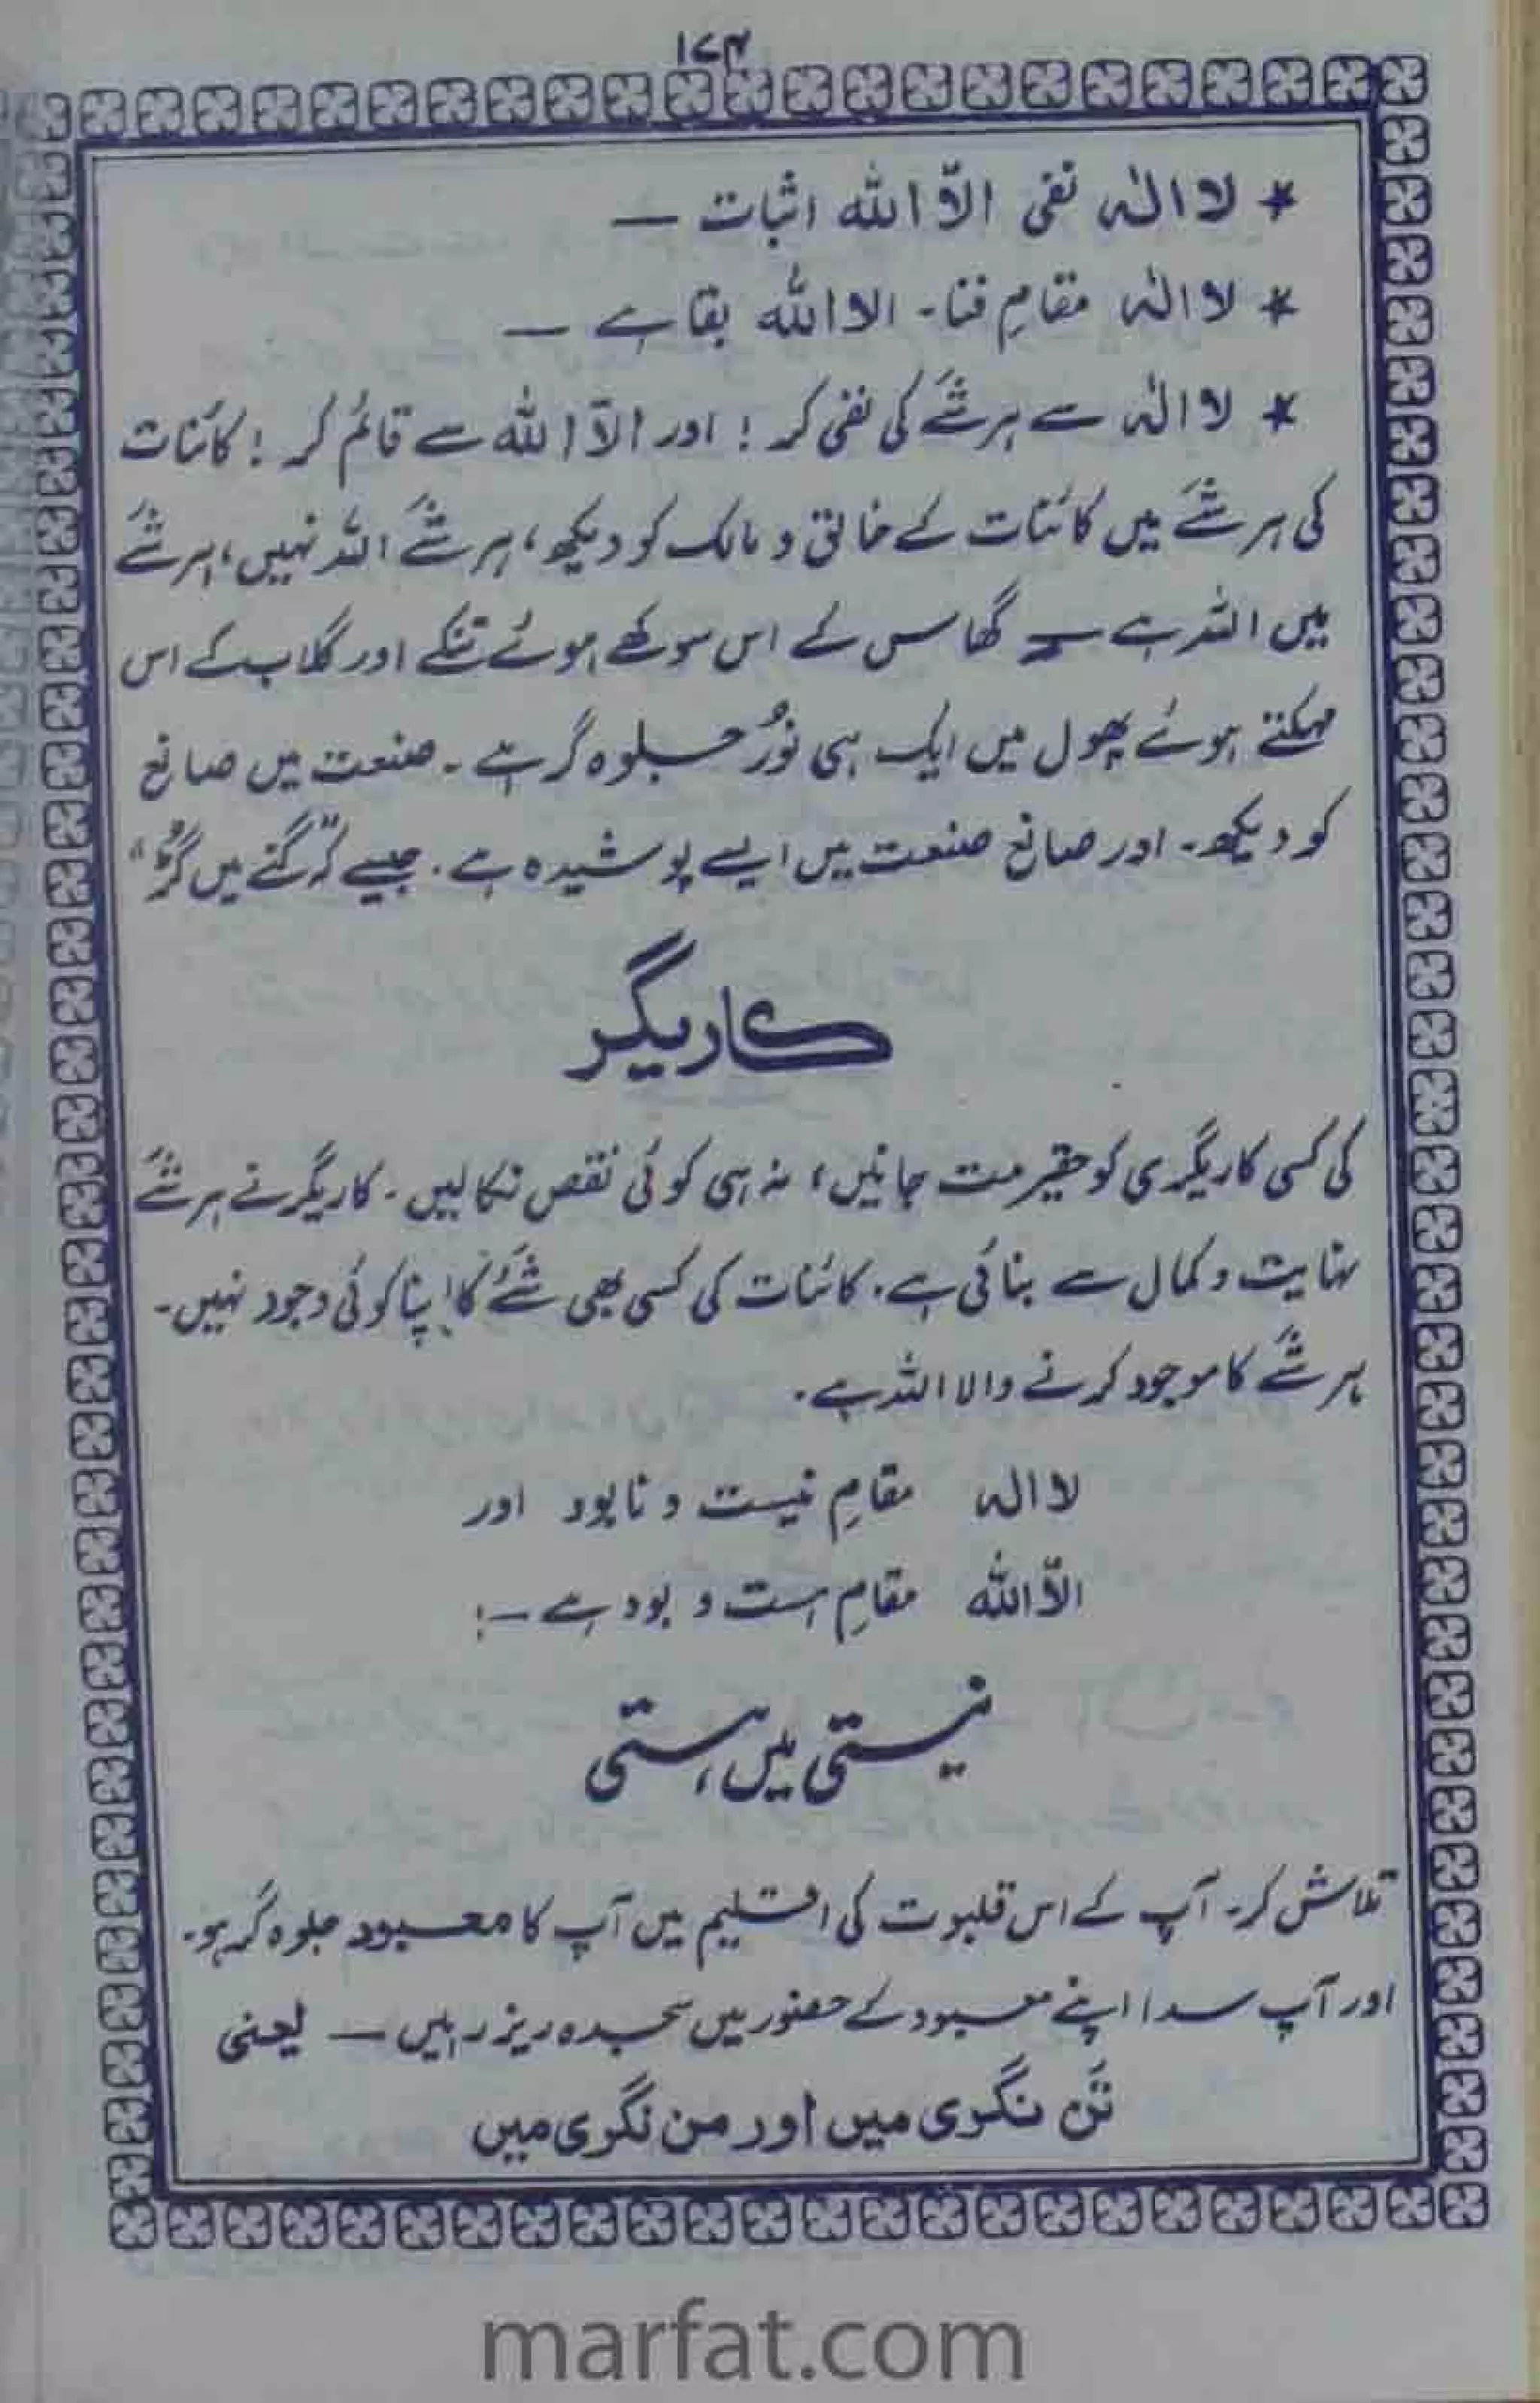 ۱۷۴
* لا الہ نفی الّا اللہ اثبات —
* لا الہ مقامِ فنا۔ الا اللہ بقا ہے —
* لا الہ سے ہر شَے کی نفی کر ! اور الّا اللہ سے قائم کر ! کائنات
کی ہر شَے میں کائنات کے خالق و مالک کو دیکھ، ہر شَے اللہ نہیں، ہر شَے
میں اللہ ہے — گھاس کے اس سوکھے ہوئے تنکے اور گلاب کے اس
مہکتے ہوئے پھول میں ایک ہی نُور جلوہ گر ہے۔ صنعت میں صانع
کو دیکھ۔ اور صانع صنعت میں ایسے پوشیدہ ہے۔ جیسے کہ "گنے میں گُڑ"
کاریگر
کی کسی کاریگری کو حقیر مت جانیں، نہ ہی کوئی نقص نکالیں۔ کاریگر نے ہر شَے
نہایت و کمال سے بنائی ہے۔ کائنات کی کسی بھی شَے کا اپنا کوئی وجود نہیں۔
ہر شَے کا موجود کرنے والا اللہ ہے۔
لا الہ مقامِ نیست و نابود اور
الّا اللہ مقامِ ہست و بود ہے —:
نیستی میں ہستی
تلاش کر۔ آپ کے اس قلبوت کی اقلیم میں آپ کا معبود جلوہ گر ہو۔
اور آپ سدا اپنے معبود کے حضور میں سجدہ ریز رہیں — یعنی
تَن نگری میں اور من نگری میں
marfat.com